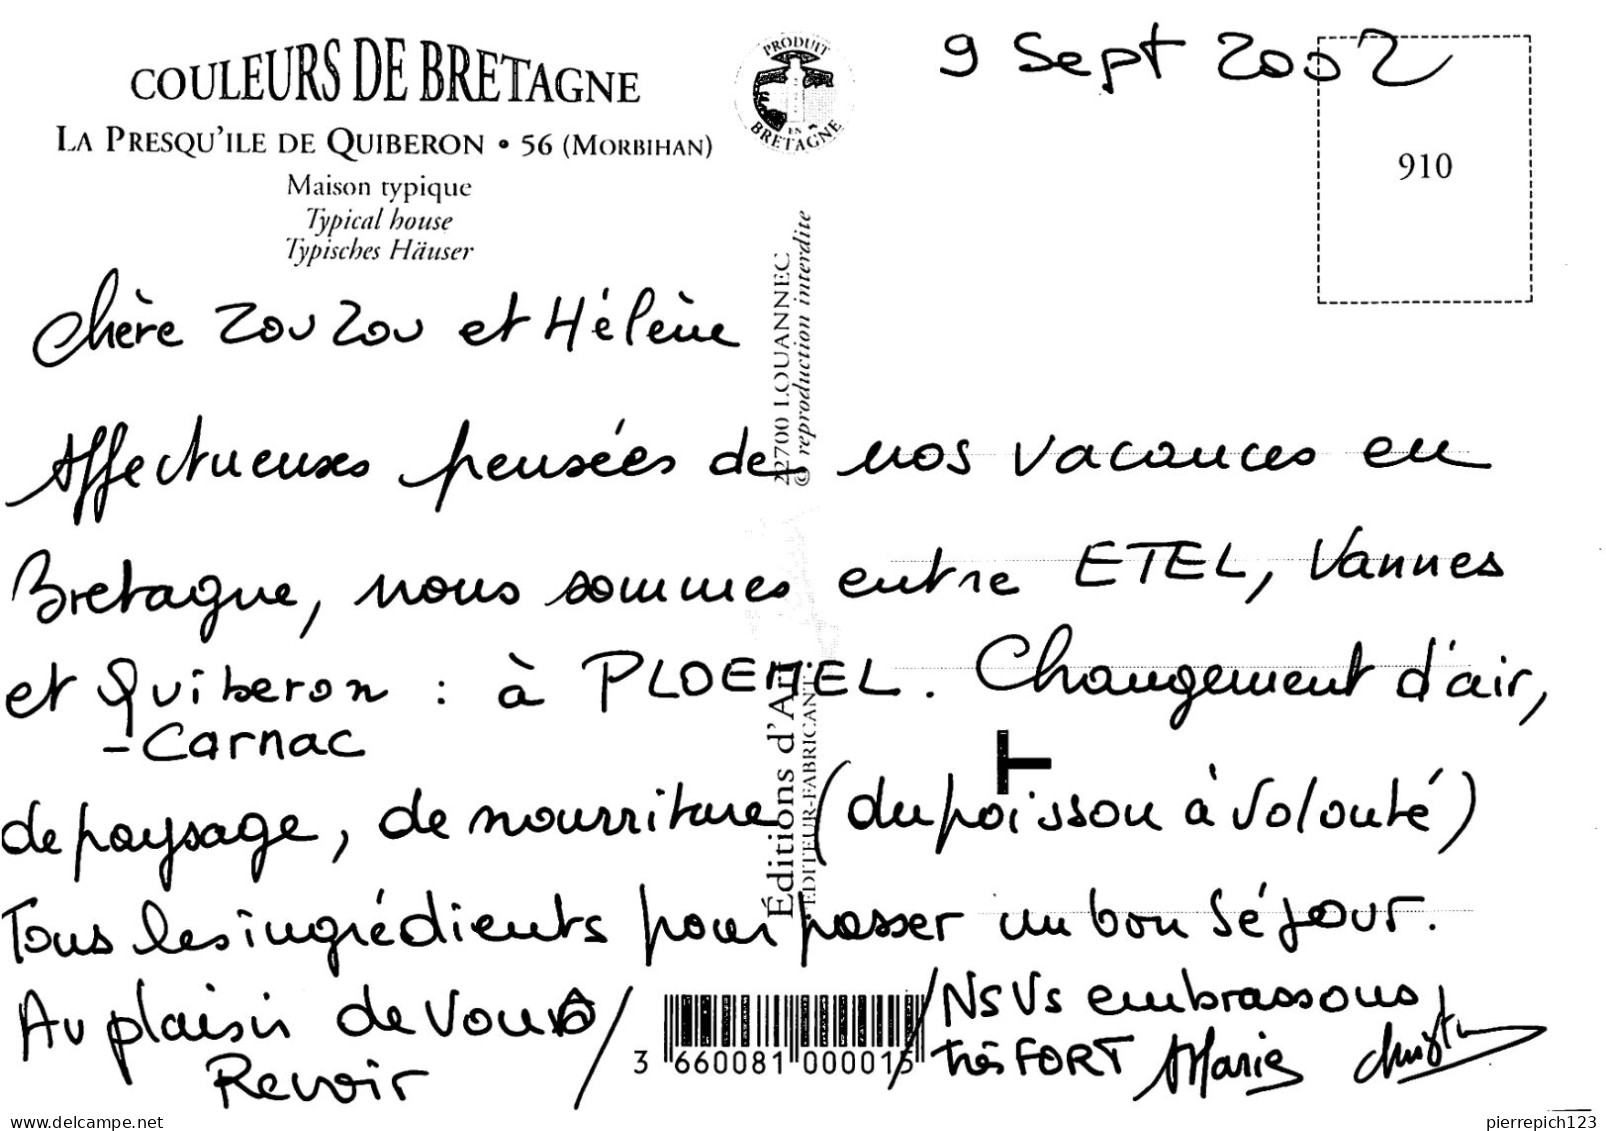 COULEURS DE BRETAGNE
LA PRESQU'ILE DE QUIBERON • 56 (MORBIHAN)
Maison typique
Typical house
Typisches Häuser
PRODUIT
EN
BRETAGNE
9 Sept 2002
910
chère ZouZou et Hélène
Affectueuses pensées de nos vacances en
Bretagne, nous sommes entre ETEL, Vannes
et Quiberon : à PLOEMEL. Changement d'air,
- Carnac
de paysage, de nourriture (du poisson à volonté)
Tous les ingrédients pour passer un bon séjour.
Au plaisir de vous
Revoir
/ Ns Vs embrassons
très FORT Marie
22700 LOUANNEC
© reproduction interdite
Éditions d'Art
ÉDITEUR-FABRICANT
3 660081 000015
delcampe.net
pierrepich123